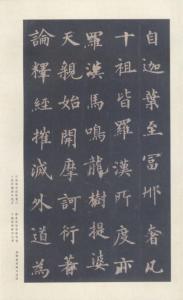 自迦葉至富那奢凡
十祖皆羅漢所度亦
羅漢馬鳴龍樹提婆
天親始開摩訶衍著
論釋經摧滅外道為